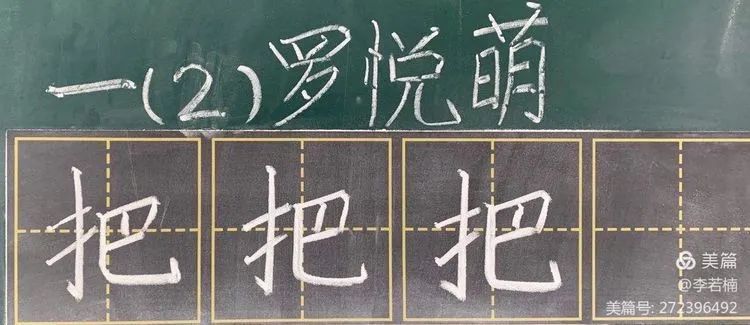 一(2)罗悦萌
把 把 把
美篇
@李若楠
美篇号: 272396492